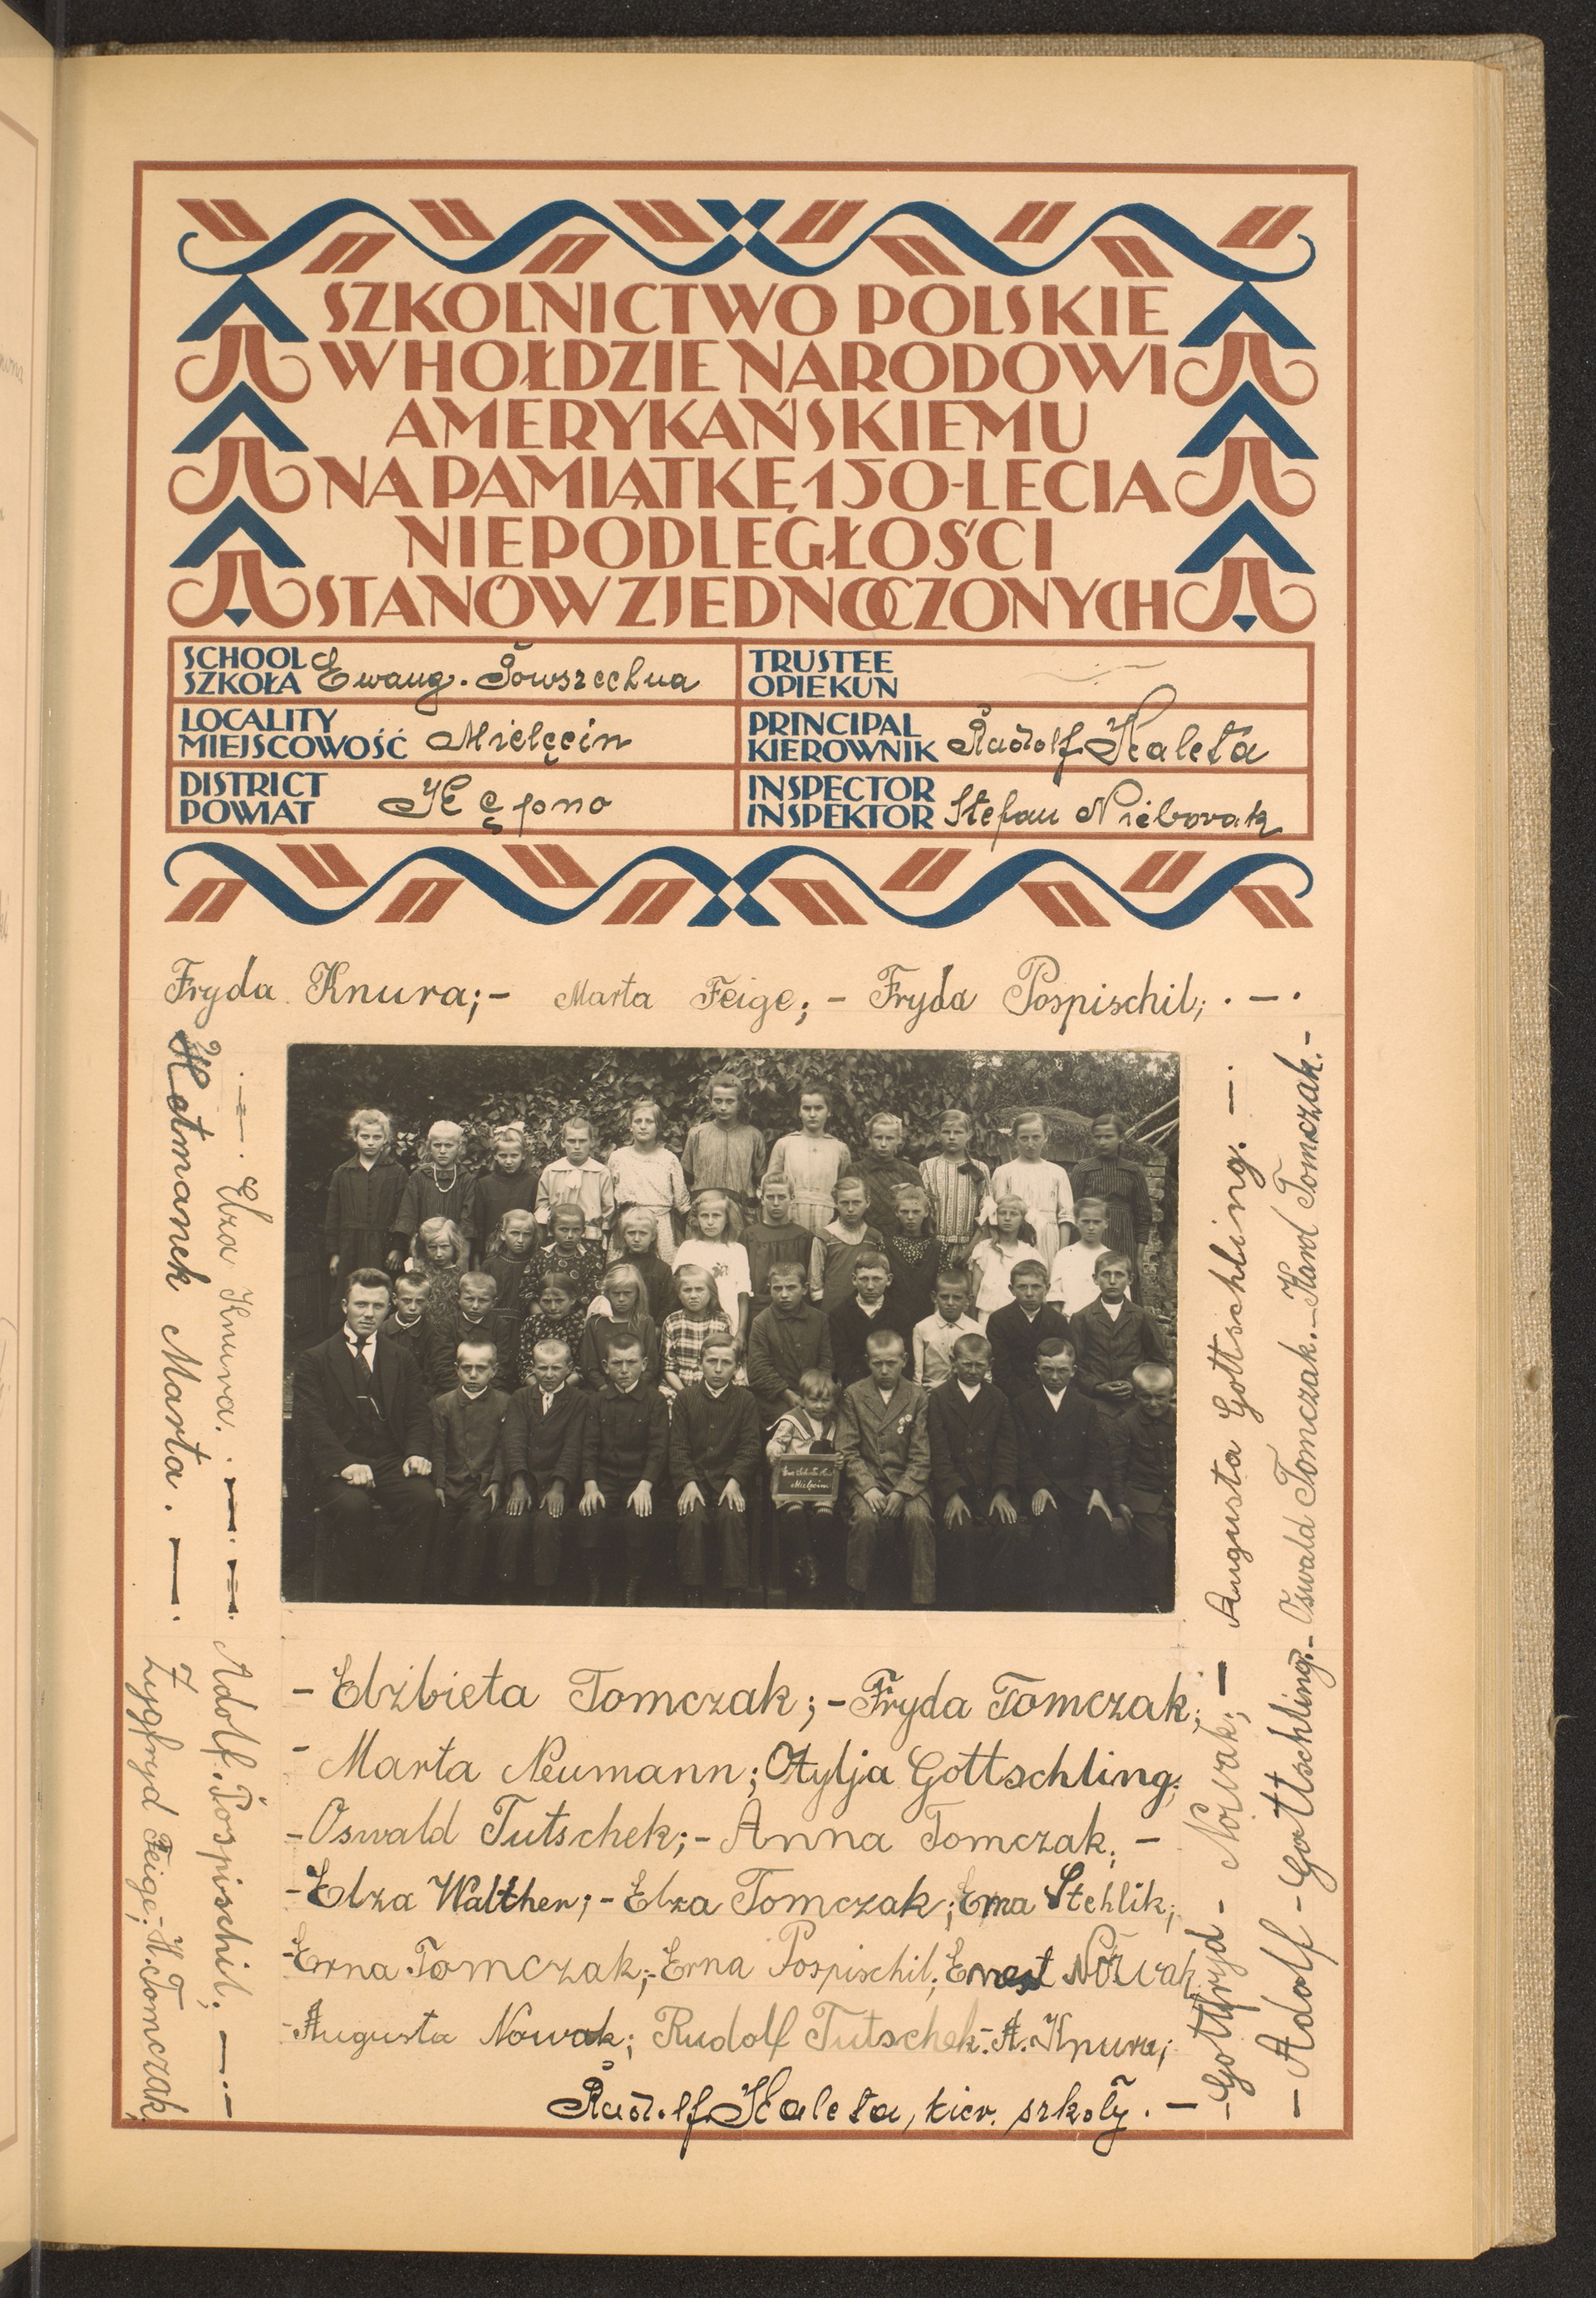 SZKOLNICTWO POLSKIE
W HOŁDZIE NARODOWI
AMERYKAŃSKIEMU
NA PAMIĄTKĘ 150-LECIA
NIEPODLEGŁOŚCI
STANÓW ZJEDNOCZONYCH
SCHOOL
SZKOŁA Ewang. Powszechna
LOCALITY
MIEJSCOWOŚĆ Mielęcin
DISTRICT
POWIAT Kępno
TRUSTEE
OPIEKUN
PRINCIPAL
KIEROWNIK Rudolf Kaleta
INSPECTOR
INSPEKTOR Stefan Nieborak
Fryda Knura;- Marta Feige;- Fryda Pospischil; . - .
Hetmanek Marta. -. Zygfryd Feige;-H. Tomczak;
. - . Elza Knura. . - . - . Adolf Pospischil; - . -
Mielęcin
- Elżbieta Tomczak;- Fryda Tomczak;
- Marta Neumann; Otylja Gottschling;
- Oswald Tutschek;- Anna Tomczak; -
- Elza Walther;- Elza Tomczak; Erna Stehlik;
- Erna Tomczak;- Erna Pospischil; Ernest Nowak
- Augusta Nowak; Rudolf Tutschek-. A. Knura;
Rudolf Kaleta, kier. szkoły. -
- Gottfryd - Nowak; - Augusta Gottschling. - .
- Adolf - Gottschling.- Oswald Tomczak.-Karol Tomczak.-